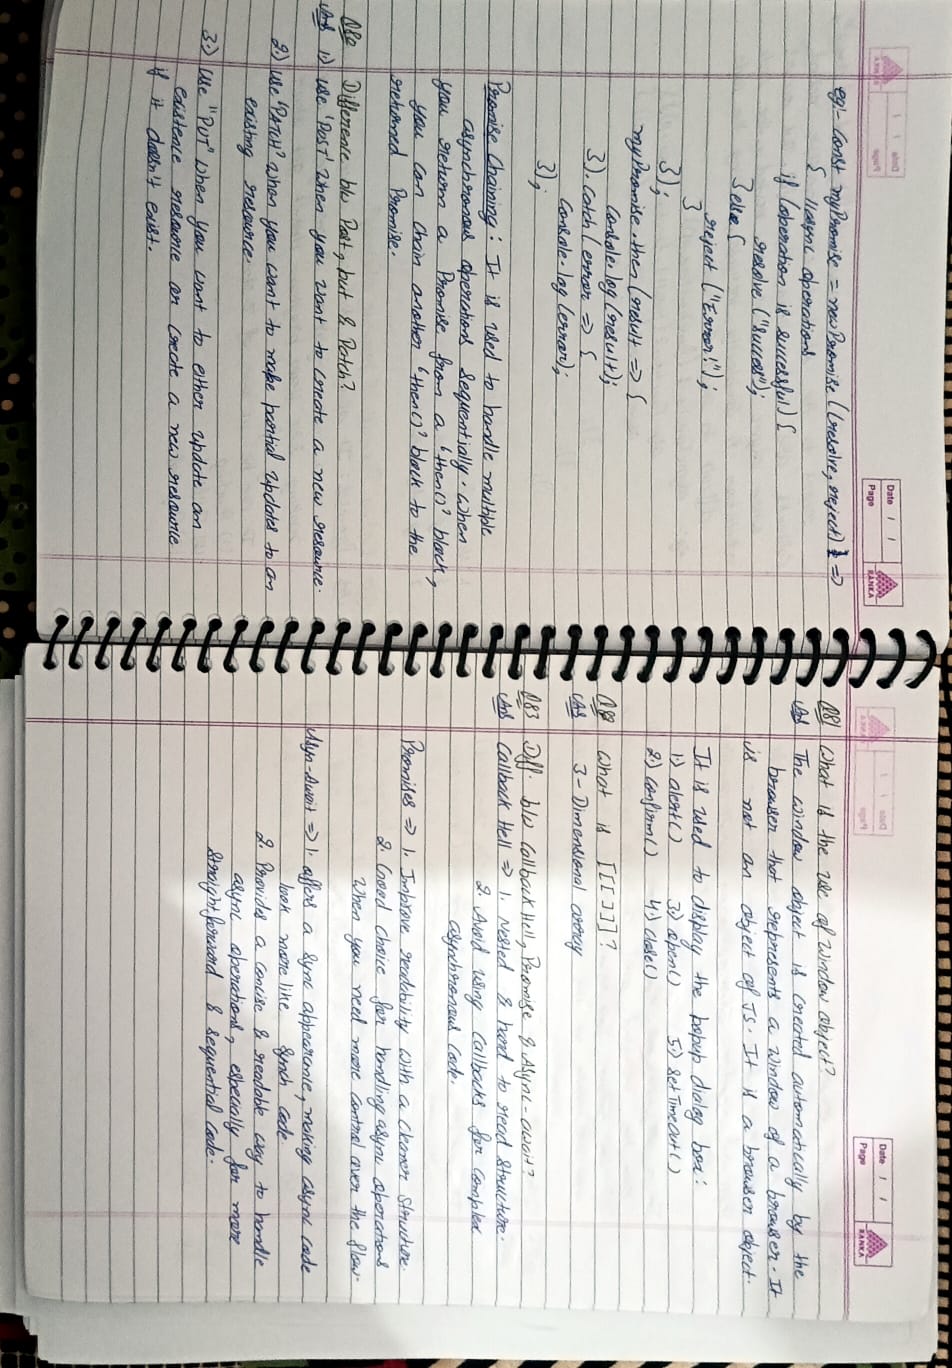 Date / /
Page
RANKA
eg:- Const myPromise = new Promise ((resolve, reject) =>
{ //async operations
if (operation is successful) {
resolve ("success");
} else {
reject ("Error!");
}
});
myPromise.then (result => {
Console.log (result);
}). catch (error => {
Console.log (error);
});
Promise Chaining: It is used to handle multiple
asynchronous operations sequentially. when
you return a Promise from a 'then()' block,
you can chain another 'then()' block to the
returned Promise.
Q80 Difference b/w Post, put & Patch?
Ans 1.) Use 'POST' when you want to create a new resource.
2.) Use 'PATCH' when you want to make partial updates to an
existing resource.
3.) Use "PUT" when you want to either update an
existence resource or create a new resource
if it doesn't exist.
Date / /
Page
RANKA
Q81 What is the use of Window object?
Ans The window object is created automatically by the
browser that represents a window of a browser. It
is not an object of JS. It is a browser object.
It is used to display the popup dialog box:
1.) alert() 3.) open() 5.) setTimeout()
2.) confirm() 4.) close()
Q82 what is [[[]]]?
Ans 3-Dimensional array
Q83 Diff. b/w Callback Hell, Promise & Async-await?
Ans Callback Hell => 1. Nested & hard to read structure.
2. Avoid using Callbacks for complex
asynchronous code.
Promises => 1. Improve readability with a cleaner structure.
2. Good choice for handling async operations
When you need more control over the flow.
Asyn-Await => 1. afford a sync appearance, making async code
look more like 'synch' code
2. Provides a concise & readable way to handle
async operations, especially for more
straightforward & sequential code.